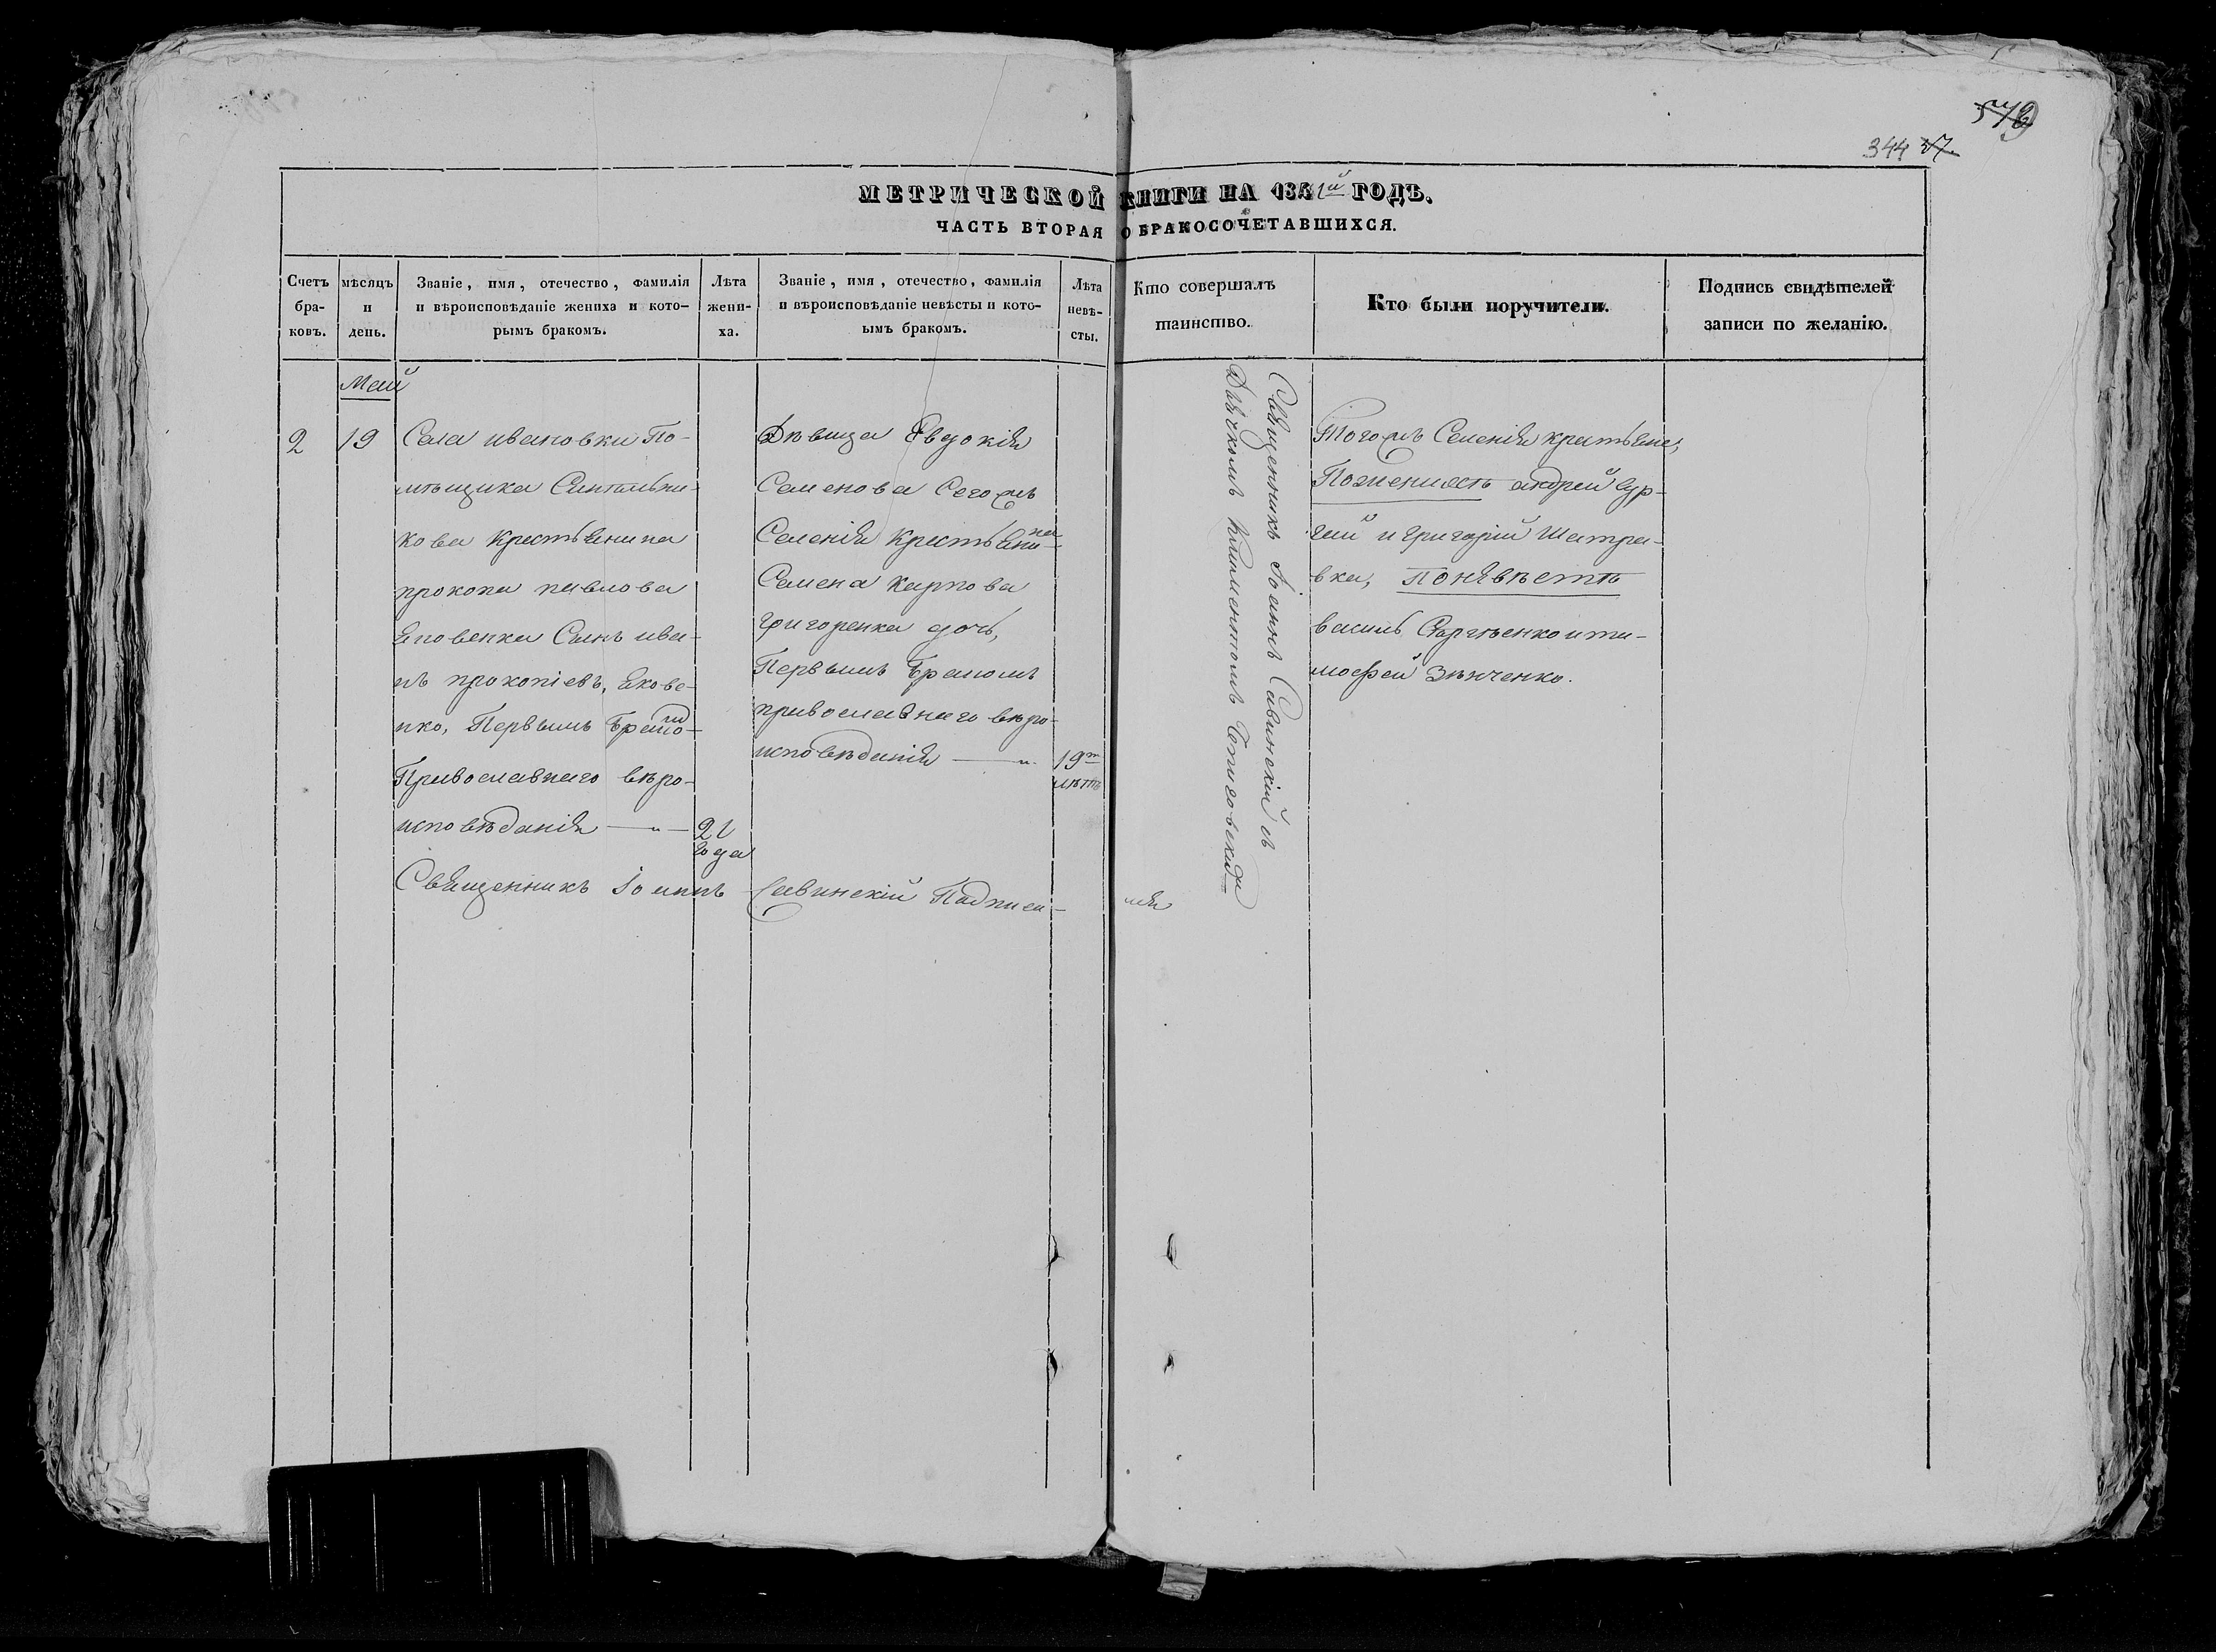 344
МЕТРИЧЕСКОЙ КНИГИ НА 1841й ГОДЪ.
ЧАСТЬ ВТОРАЯ О БРАКОСОЧЕТАВШИХСЯ.
Счетъ бра-ковъ.
мѣсяцъ и день.
Званіе, имя, отечество, фамилія и вѣроисповѣданіе жениха и кото-рымъ бракомъ.
Лѣта жени-ха.
Званіе, имя, отечество, фамилія и вѣроисповѣданіе невѣсты и кото-ымъ бракомъ.
Лѣта невѣ-сты.
Кто совершалъ таинство.
Кто были поручители.
Подпись свидѣтелей записи по желанію.
Май
2
19
Села ивановки По-
мѣщика
кова Крестьянина
прокопа павлова
Яковенка Сынъ ива-
нъ прокопіевъ, Якове-
нко, Первымъ Бракомъ
Православнаго вѣро-
исповѣданія
21
года
Дѣвица Евдокія
Семенова Сегожъ
Селенія Крестьянина
Семена Карпова
григоренка дочь,
Первымъ Бракомъ
православнаго вѣро-
исповѣданія
19ть
лѣтъ
Священникъ Іоаннъ Савинскій съ
Дьячкомъ Климентомъ
Тогожъ Селенія крестьяне,
По женихѣ андрей Сур-
гай и григорій Шатра-
вка, По невѣстѣ
василь Сергѣенко и ти-
мофей Зѣнченко.
Священникъ Іоаннъ Савинскій Подписа-
лся